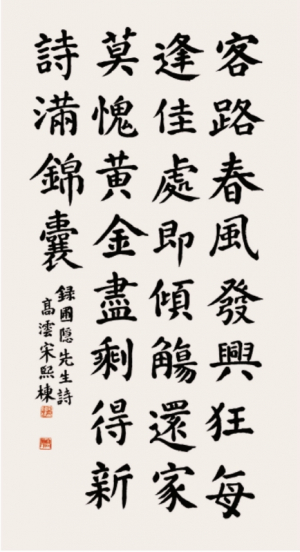 客路春風發興狂每
逢佳處即傾觴還家
莫愧黃金盡剩得新
詩滿錦囊
錄圃隐先生詩
高澐宋熙棟